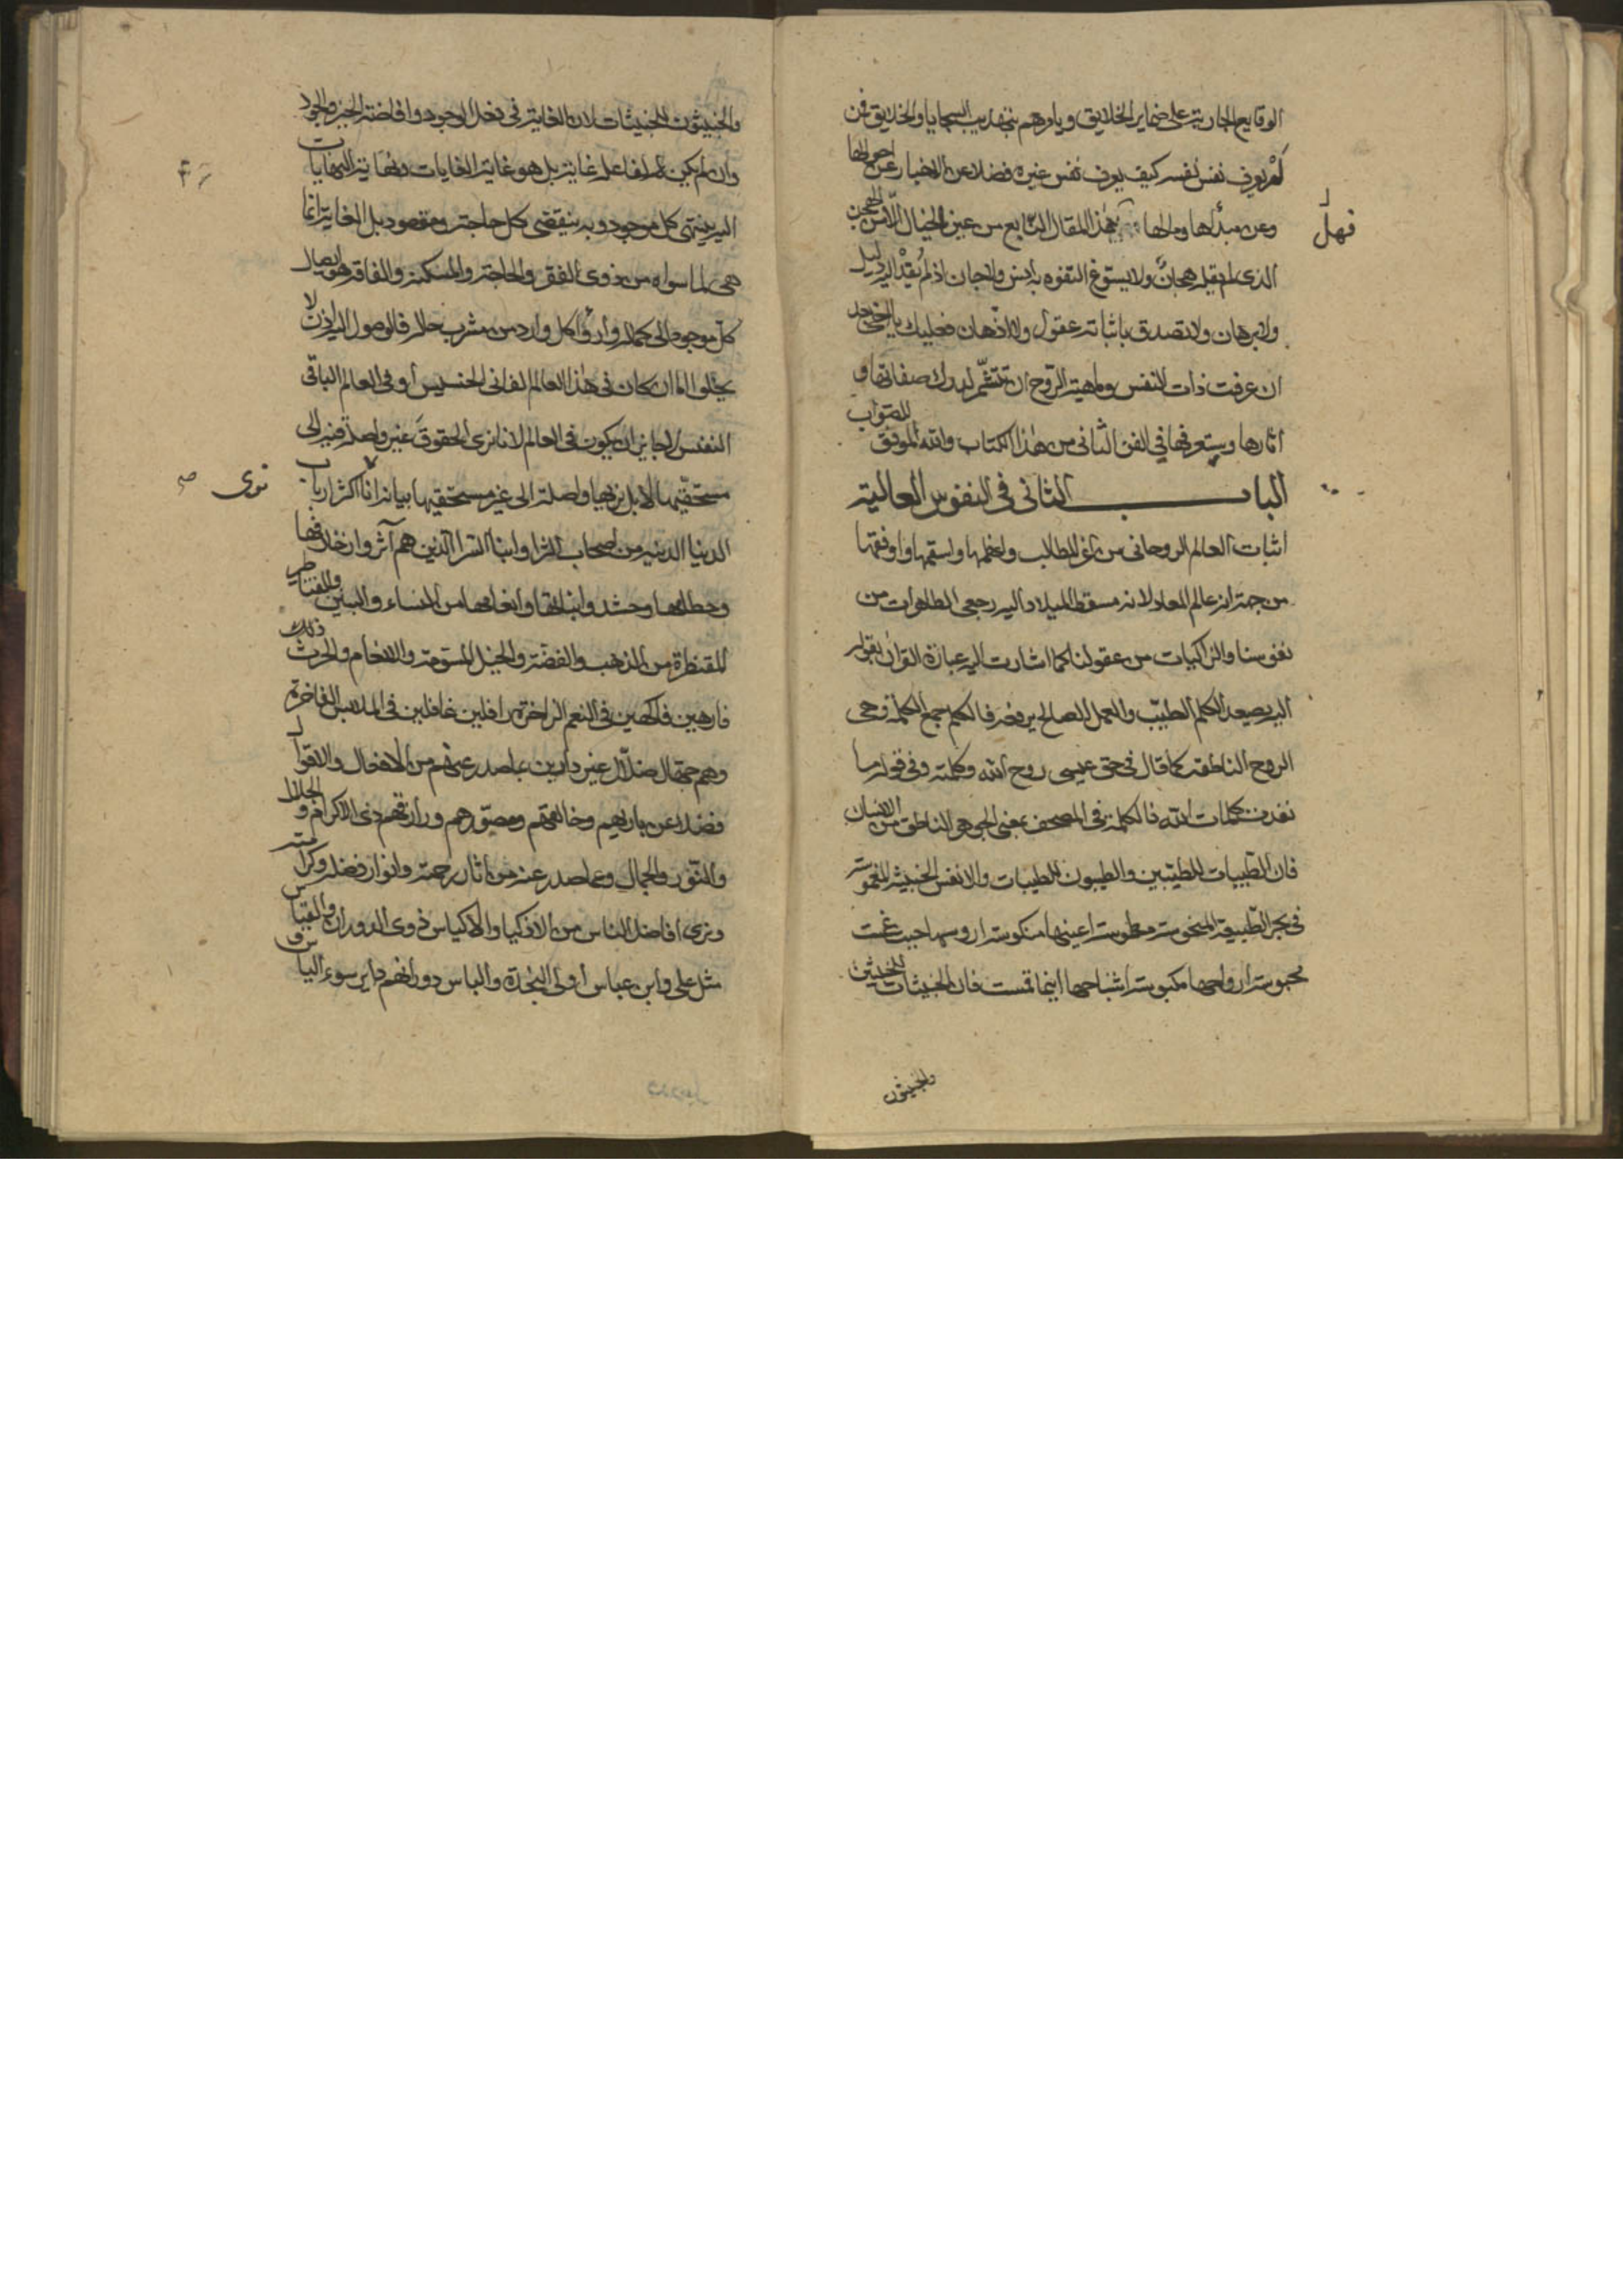 الوقايع الجارية على ضماير الخلايق ويامرهم بتهذيب السجايا والخلايق فمن
لم يعرف نفس نفسه كيف يعرف نفس غيره فضلا عن الاخبار عن احوالها
وعن مبدأها ومآلها فهل هذا المقال النابع من عين الخيال الا من الهجن
الذى لم يقله هجان ولا يستوغ التفوه به انس ولا جان اذ لم يقد اليه دليل
ولا برهان ولا تصدق باثباته عقول ولا اذهان فعليك يا اخى بعد
ان عرفت ذات النفس وماهية الروح ان تتشمر لدرك صفاتها و
آثارها وستعرفها فى الفن الثانى من هذا الكتاب والله الموفق للصواب
الباب الثانى فى النفوس العالية
اثبات العالم الروحانى من اعز المطالب وافخمها واسقمها واوفقها
من جهة انه عالم المعاد لانه مسقط الميلاد اليه رجعى الطاهرات من
نفوسنا والزاكيات من عقولنا كما اشارت اليه عبارة القرآن بقوله
اليه يصعد الكلم الطيب والعمل الصالح يرفعه فالكلم جمع الكلمة وهى
الروح الناطقة كما قال فى حق عيسى روح الله وكلمته وفى قوله ما
نفدت كلمات الله فالكلمة فى المصحف بمعنى الحى هو الناطق من الانسان
فان الطيبات للطيبين والطيبون للطيبات والانفس الخبيثة المغموسة
فى بحر الطبيعة المنحوسة مطموسة اعينها منكوسة اروسها حيث غمست
محبوسة ارواحها مكبوسة اشباحها اينما تمست فان الخبيثات للخبيثين
والخبيثون
والخبيثون للخبيثات لان الغاية فى فعل الوجود وافاضة الخير والجود
وان لم يكن لفاعله غاية بل هو غاية الغايات ونهاية النهايات
اليه ينتهى كل موجود وبه ينقضى كل حاجة ومقصود بل الغاية انما
هى لما سواه من ذوى الفقر والحاجة والمسكنة والفاقة هو ايصال
كل موجود الى كماله وارواء كل وارد من مشرب حلاله فالوصول اليه اذن لا
يخلو اما ان كان فى هذا العالم الفانى الخسيس او فى العالم الباقى
النفيس لا جايز ان يكون فى العالم لانا نرى الحقوق غير واصلة فيه الى
مستحقيها لا بل نريها واصلة الى غير مستحقيها بيانه انا نرى اكثر ارباب
الدنيا الدنية من اصحاب الثرا وابنا الشرا الذين هم آثروا زخارفها
وحطامها وحشدوا بنائها وانعامها من النساء والبنين والقناطير
المقنطرة من الذهب والفضة والخيل المسومة والانعام والحرث ذلك
فارهين فاكهين فى النعم الزاخرة رافلين غافلين فى الملابس الفاخرة
وهم جهال ضلال غير دارين بما صدر عنهم من الافعال والاقوال
فضلا عن باريهم وخالقهم ومصورهم ورازقهم ذى الاكرام والجلال
والنور والجمال وعما صدر عنه من آثار رحمته وانوار فضله وكرامته
ونرى افاضل الناس من الاذكيا والاكياس ذوى الدوران والقياس
مثل على وابن عباس اولى النجدة والباس دورانهم داير سوء الياس و